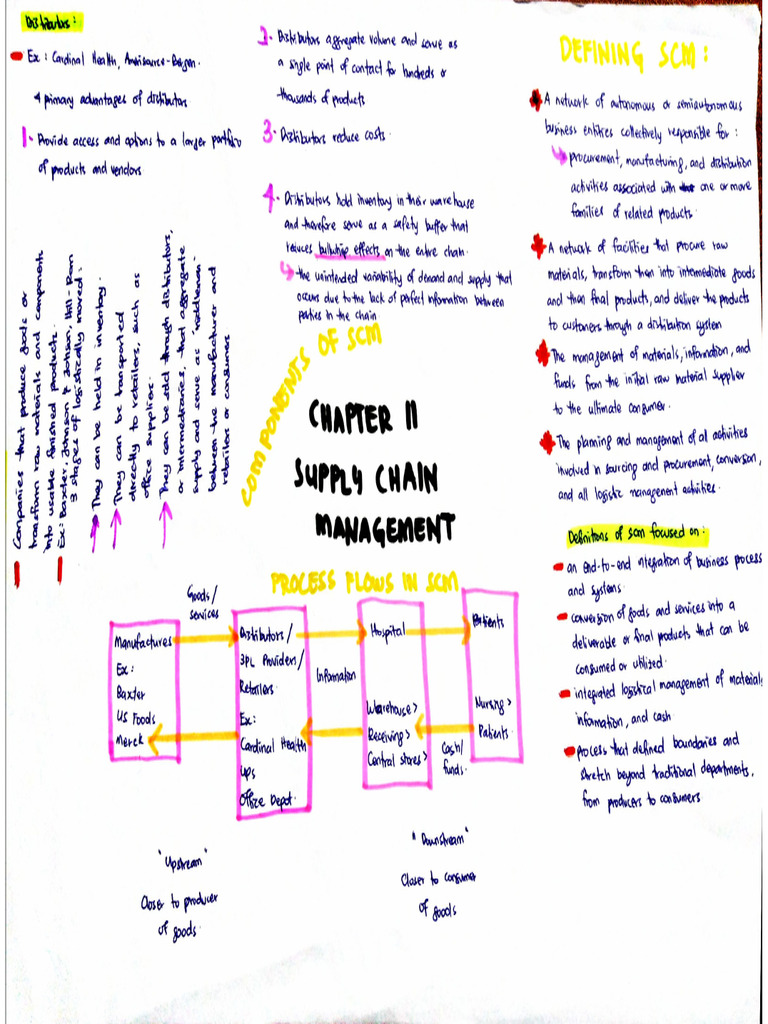 Distributors:
Ex: Cardinal Health, Amerisource-Bergen.
4 primary advantages of distributors
1. Provide access and options to a larger portfolio
of products and vendors
2. Distributors aggregate volume and serve as
a single point of contact for hundreds or
thousands of products
3. Distributors reduce costs.
4. Distributors hold inventory in their warehouse
and therefore serve as a safety buffer that
reduces bullwhip effects on the entire chain.
the unintended variability of demand and supply that
occurs due to the lack of perfect information between
parties in the chain
Companies that produce goods or
transform raw materials and components
into usable finished products.
Ex: Baxter, Johnson & Johnson, Hill-Rom
3 stages of logistically moved:
They can be held in inventory.
They can be transported
directly to retailers, such as
office suppliers.
They can be sold through distributors,
or intermediaries, that aggregate
supply and serve as middleman
between the manufacturer and
retailers or consumers
COMPONENTS OF SCM
CHAPTER 11
SUPPLY CHAIN
MANAGEMENT
DEFINING SCM:
A network of autonomous or semiautonomous
business entities collectively responsible for:
procurement, manufacturing, and distribution
activities associated with one or more
families of related products.
A network of facilities that procure raw
materials, transform then into intermediate goods
and then final products, and deliver the products
to customers through a distribution system
The management of materials, information, and
funds from the initial raw material supplier
to the ultimate consumer.
The planning and management of all activities
involved in sourcing and procurement, conversion,
and all logistic management activities.
Definitions of scm focused on:
an end-to-end integration of business process
and systems.
conversion of goods and services into a
deliverable or final products that can be
consumed or utilized.
integrated logistical management of materials,
information, and cash
process that defined boundaries and
stretch beyond traditional departments,
from producers to consumers
PROCESS FLOWS IN SCM
Goods/
services
Manufactures
Ex:
Baxter
US Foods
Merck
Distributors/
3PL Providers/
Retailers.
Ex:
Cardinal Health
UPS
Office Depot.
Information
Hospital
Warehouse>
Receiving>
Central stores>
Cash/
funds.
Patients
Nursing>
Patients
"Upstream"
Closer to producer
of goods.
"Downstream"
Closer to consumer
of goods